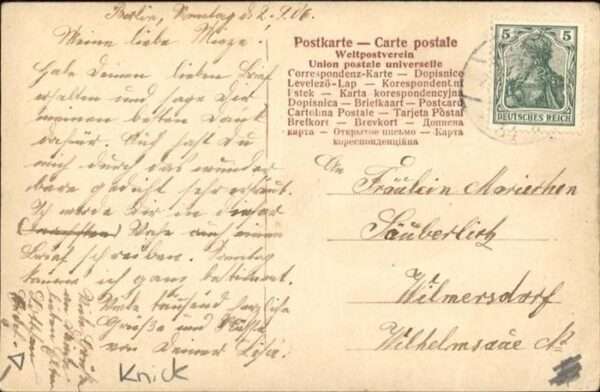 Berlin, Sonntag d. 2. 9. 06.
Meine liebe Mieze!
Habe Deinen lieben Brief
erhalten und sage Dir
meinen besten Dank
dafür. Auch hast Du
mich durch das wunder
bare Gedicht sehr erfreut.
Ich werde Dir in dieser
Woche noch einen
Brief schreiben. Sonntag
komme ich ganz bestimmt.
Viele tausend herzliche
Grüße und Küsse
von Deiner
Viele Grüße
an Deine
lieben Eltern
Knick
Postkarte — Carte postale
Weltpostverein
Union postale universelle
Correspondenz-Karte — Dopisnice
Levelező-Lap — Korespondent.ní
lístek — Karta korespondencyjna
Dopisnica — Briefkaart — Postcard
Cartolina Postale — Tarjeta Postal
Brefkort — Brevkort — Дописна
карта — Открытое письмо — Карта
кореспонденційна
5 5
DEUTSCHES REICH
An
Fräulein Mariechen
Säuberlich
Wilmersdorf
Wilhelmsaue